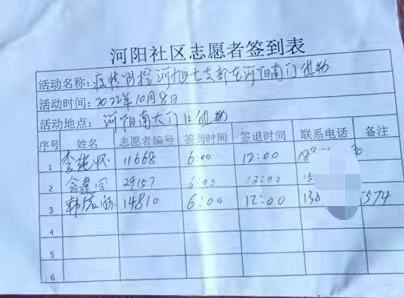 河阳社区志愿者签到表
活动名称: 疫情防控河阳七支部在河阳南门值勤
活动时间: 2022年10月8日
活动地点: 河阳南大门口值勤
序号 姓名 志愿者编号 签到时间 签退时间 联系电话 备注
1 11668 6:00 12:00
2 29157 6:00 12:00 15
3 14810 6:00 12:00 138 574
4
5
6